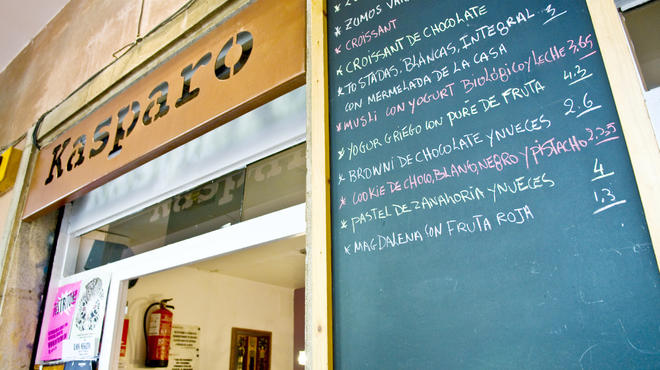 Kasparo
* ZUMOS
* CROISSANT
* CROISSANT DE CHOCOLATE
* TOSTADAS, BLANCAS, INTEGRAL 3
CON MERMELADA DE LA CASA
* MUSLI CON YOGURT BIOLÓGICO Y LECHE 3,65
* YOGUR GRIEGO CON PURÉ DE FRUTA 4.3
* BROWNI DE CHOCOLATE Y NUECES 2.6
* COOKIE DE CHOCO, BLANCO, NEGRO Y PISTACHO 2,25
* PASTEL DE ZANAHORIA Y NUECES 4
* MAGDALENA CON FRUTA ROJA 1.3